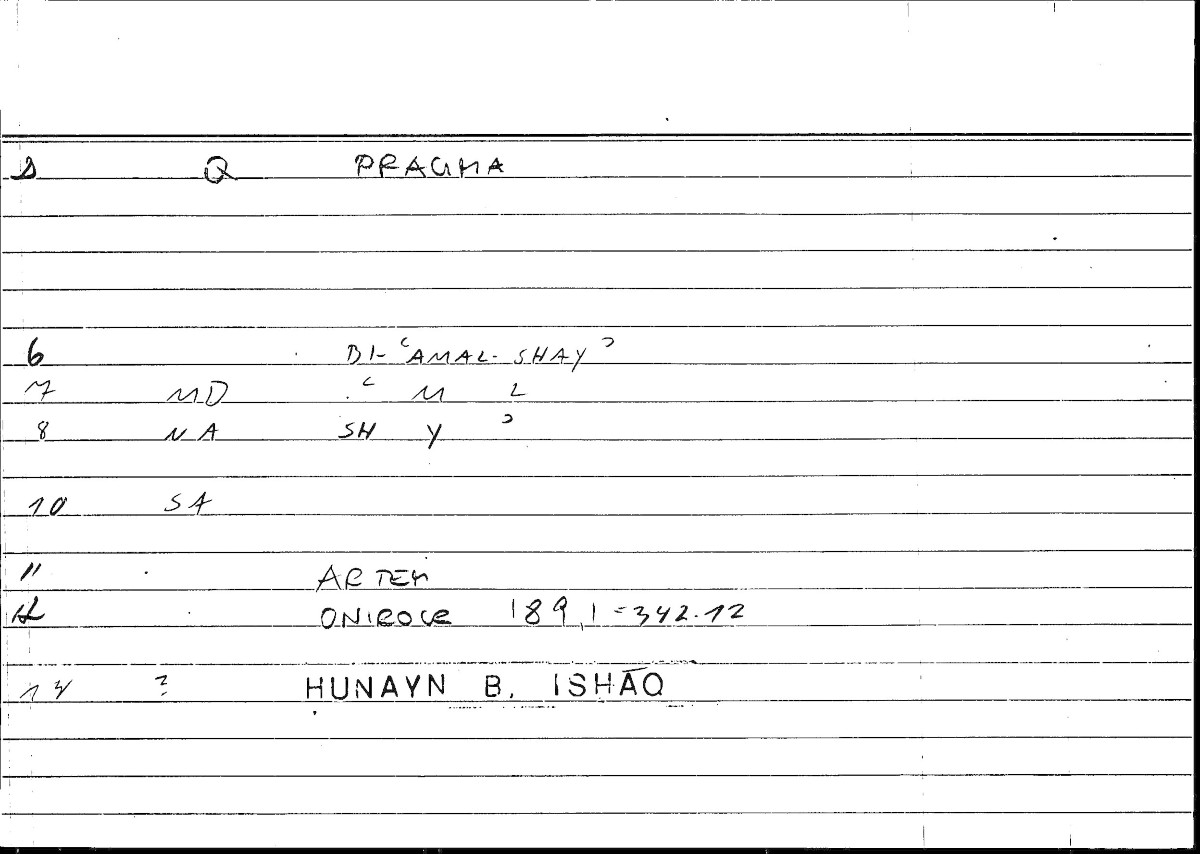 Q PRAGMA
6 BI-ʿAMAL-SHAYʾ
7 MD ʿ M L
8 NA SH Y ʾ
10 SA
11 ARTEM
12 ONIROCR 189,1=342.12
13 ? HUNAYN B. ISHĀQ